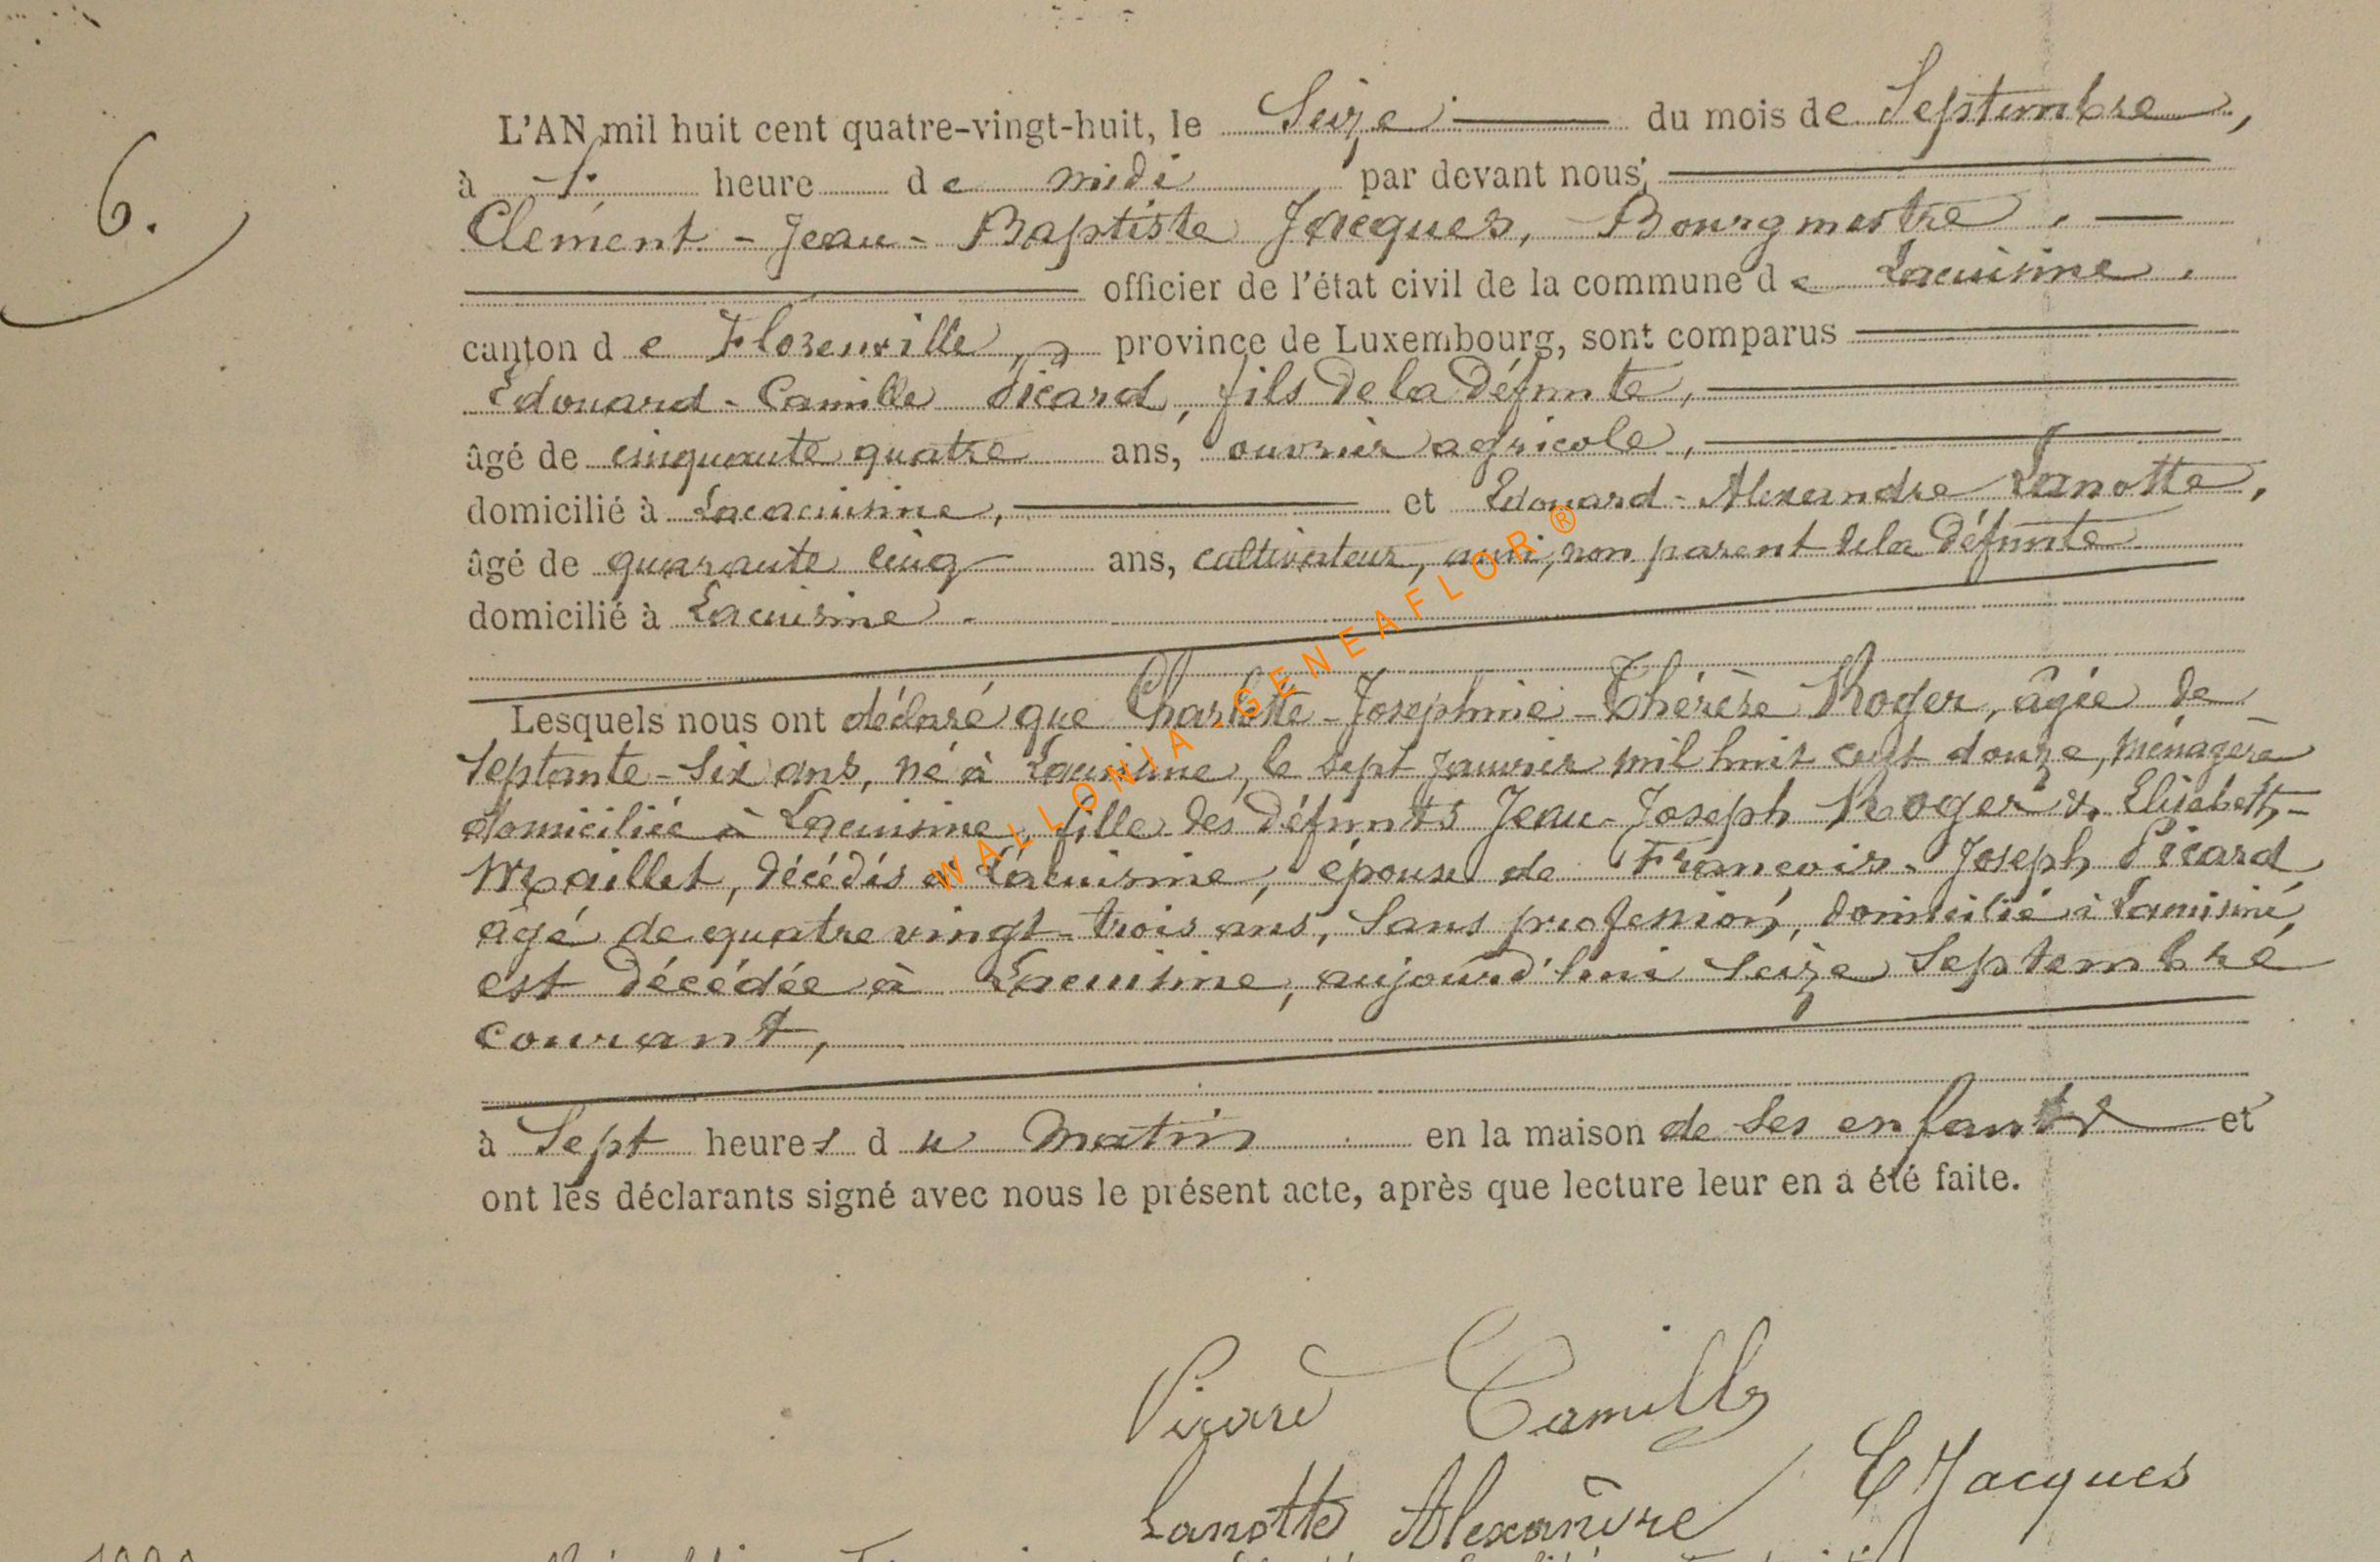 6.
L'AN mil huit cent quatre-vingt-huit, le Seize du mois de Septembre,
à 1. heure de midi, par devant nous,
Clément-Jean-Baptiste Jacques, Bourgmestre,
officier de l'état civil de la commune de Lacuisine,
canton de Florenville, province de Luxembourg, sont comparus
Edouard-Camille Picard, fils de la Défunte,
âgé de cinquante quatre ans, ouvrier agricole,
domicilié à Lacacuisine, et Edouard-Alexandre Lanotte,
âgé de quarante cinq ans, cultivateur, ami, non parent de la Défunte
domicilié à Lacuisine.
Lesquels nous ont déclaré que Charlotte-Joséphine-Thérèse Roger, âgée de
Septante-Six ans, né à Lacuisine, le sept Janvier mil huit cent douze, ménagère
domiciliée à Lacuisine, fille des défunts Jean-Joseph Roger & Elisabeth-
Maillet, décédés à Lacuisine, épouse de François-Joseph Picard
âgé de quatre vingt-trois ans, Sans profession, domicilié à Lacuisine,
est décédée à Lacuisine, aujourd'hui Seize Septembre
courant,
à Sept heures du Matin en la maison de Ses enfants et
ont les déclarants signé avec nous le présent acte, après que lecture leur en a été faite.
Picard Camille
C Jacques
Lanotte Alexandre
WALLONIA-GENEAFLOR®